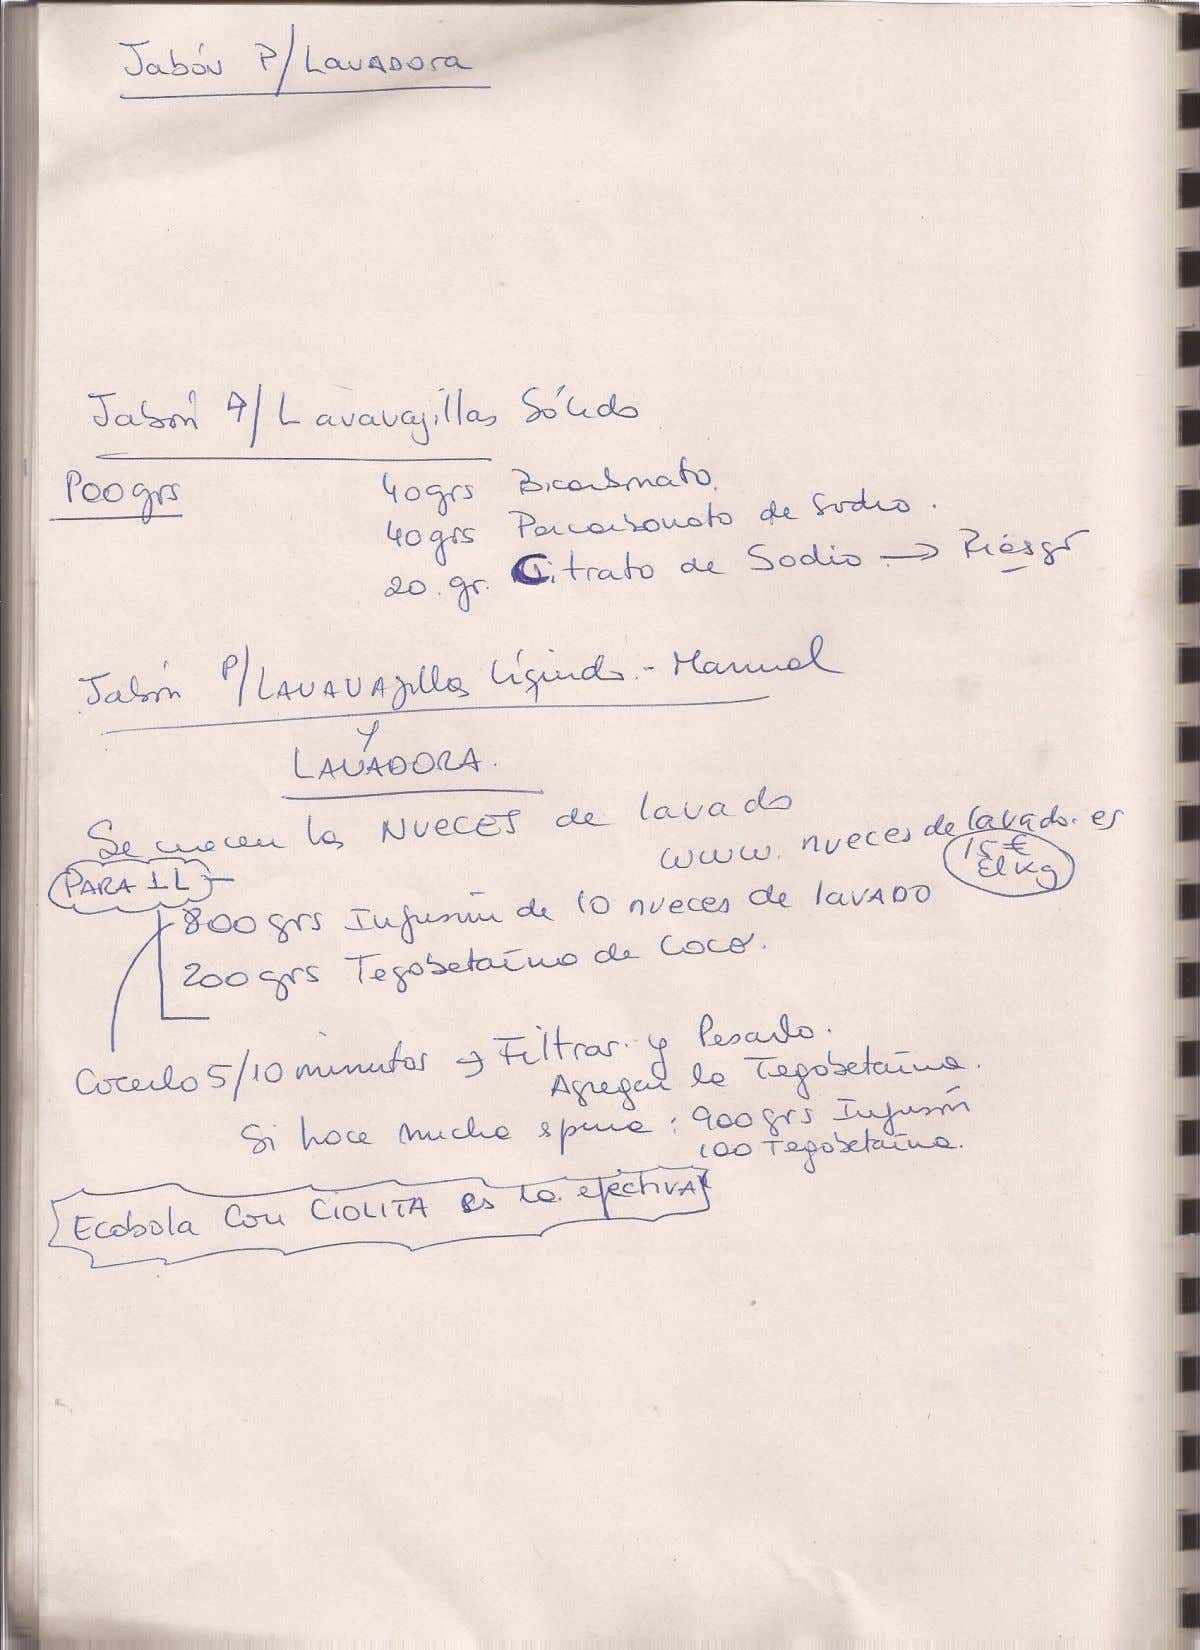 Jabón P/Lavadora
Jabón P/Lavavajillas Sólido
100grs 40grs Bicarbonato.
40grs Percarbonato de Sodio.
20.gr. Citrato de Sodio →
Jabón P/Lavavajillas Líquido.-Manual
y
LAVADORA.
Se cuecen las NUECES de lavado
www.nuecesdelavado.es
15 €
El Kg
PARA 1L
800grs Infusión de 10 nueces de lavado
200grs Tegobetaína de Coco.
Cocerlo 5/10 minutos → Filtrar y Pesarlo.
Agregar la Tegobetaína.
Si hace mucha espuma: 900grs Infusión
100 Tegobetaína.
Ecobola Con CIOLITA es la efectiva